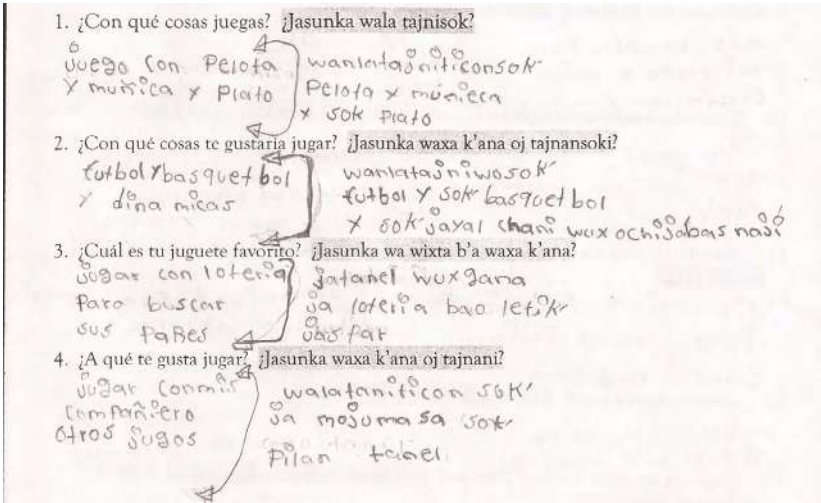 1. ¿Con qué cosas juegas? ¿Jasunka wala tajnisok?
Juego con Pelota
y muñica y Plato
wanlatajniticonsok'
Pelota y muñieca
y sok Plato
2. ¿Con qué cosas te gustaría jugar? ¿Jasunka waxa k'ana oj tajnansoki?
futbol y basquet bol
y dina micas
wanlatajniwosok'
futbol y sok' basquet bol
y sok' jayal chani wax ochijabas naji
3. ¿Cuál es tu juguete favorito? ¿Jasunka wa wixta b'a waxa k'ana?
jugar con loteria
Para buscar
sus PaRes
jatanel wuxgana
ja loteria bao letik'
jbis Par
4. ¿A qué te gusta jugar? ¿Jasunka waxa k'ana oj tajnani?
jugar conmis
compañiero
otros jugos
walataniticon sok'
ja mojuma sa sok'
Pilan tanel.